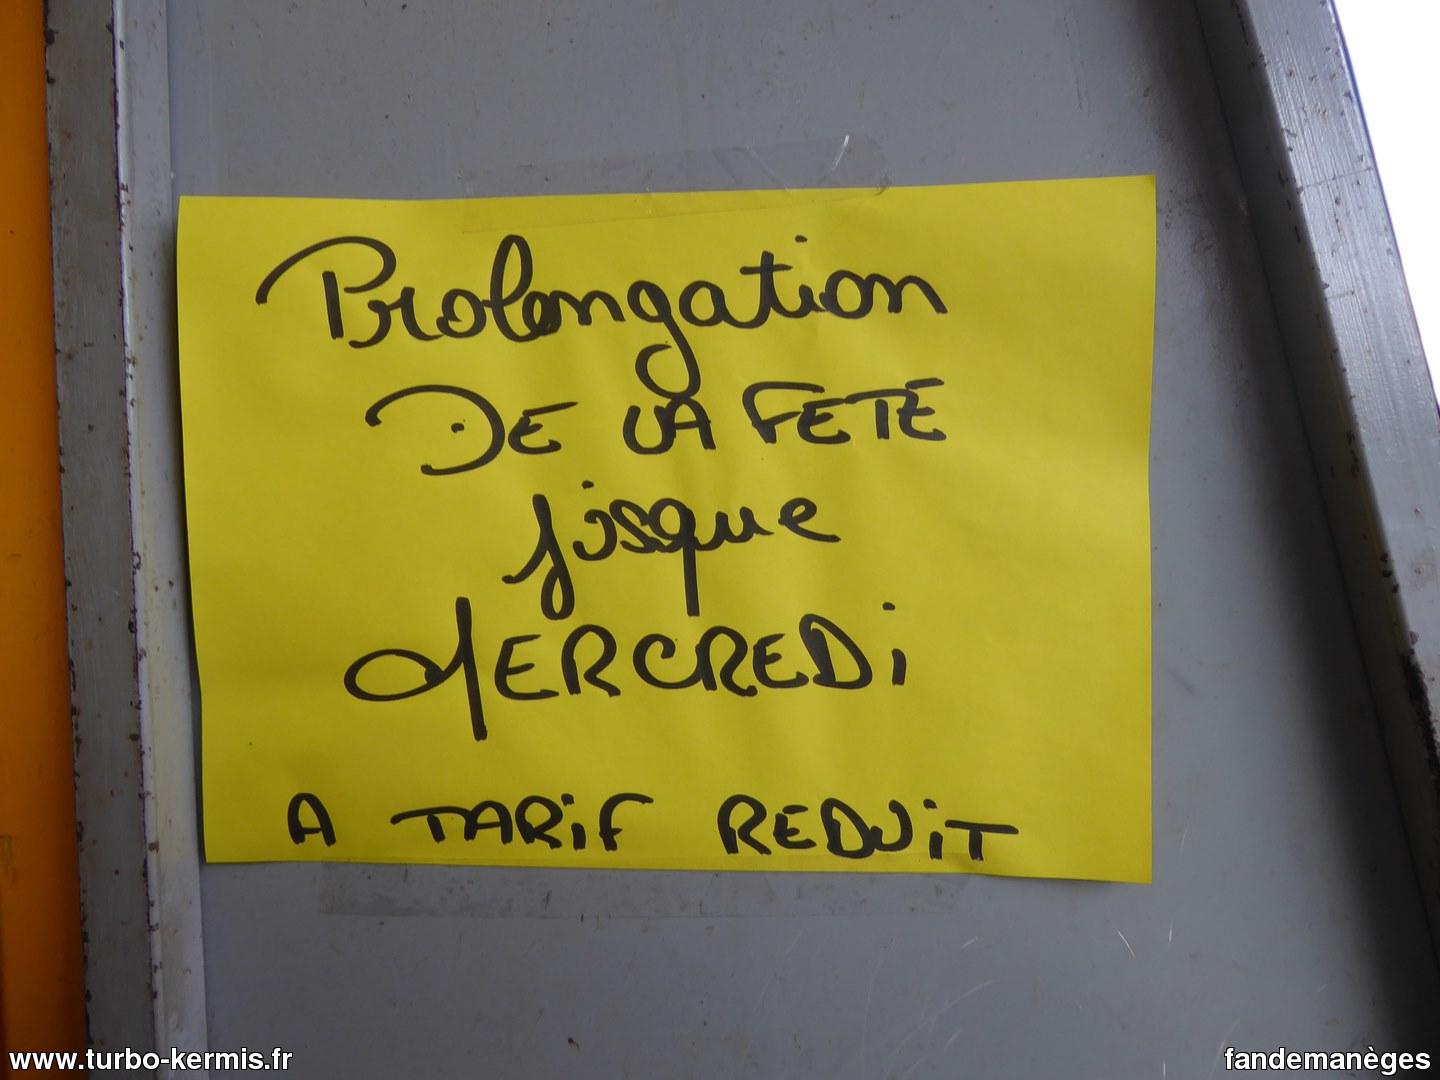 Prolongation
DE LA FETE
jusque
MERCREDi
A TARiF REDUiT
www.turbo-kermis.fr
fandemanèges